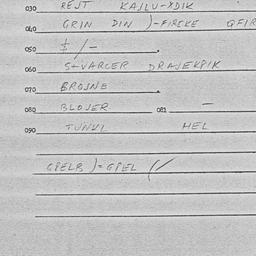 030 REJT KAJLU-XDIK
040 GRIN DIN )-FIRCKE GFIR
050 $ /-
060 S-VARCER DRAJEKPIK
070 BROJNE
080 BLOJER 081 —
090 TUNKL HEL
GPELB )=GPEL (/